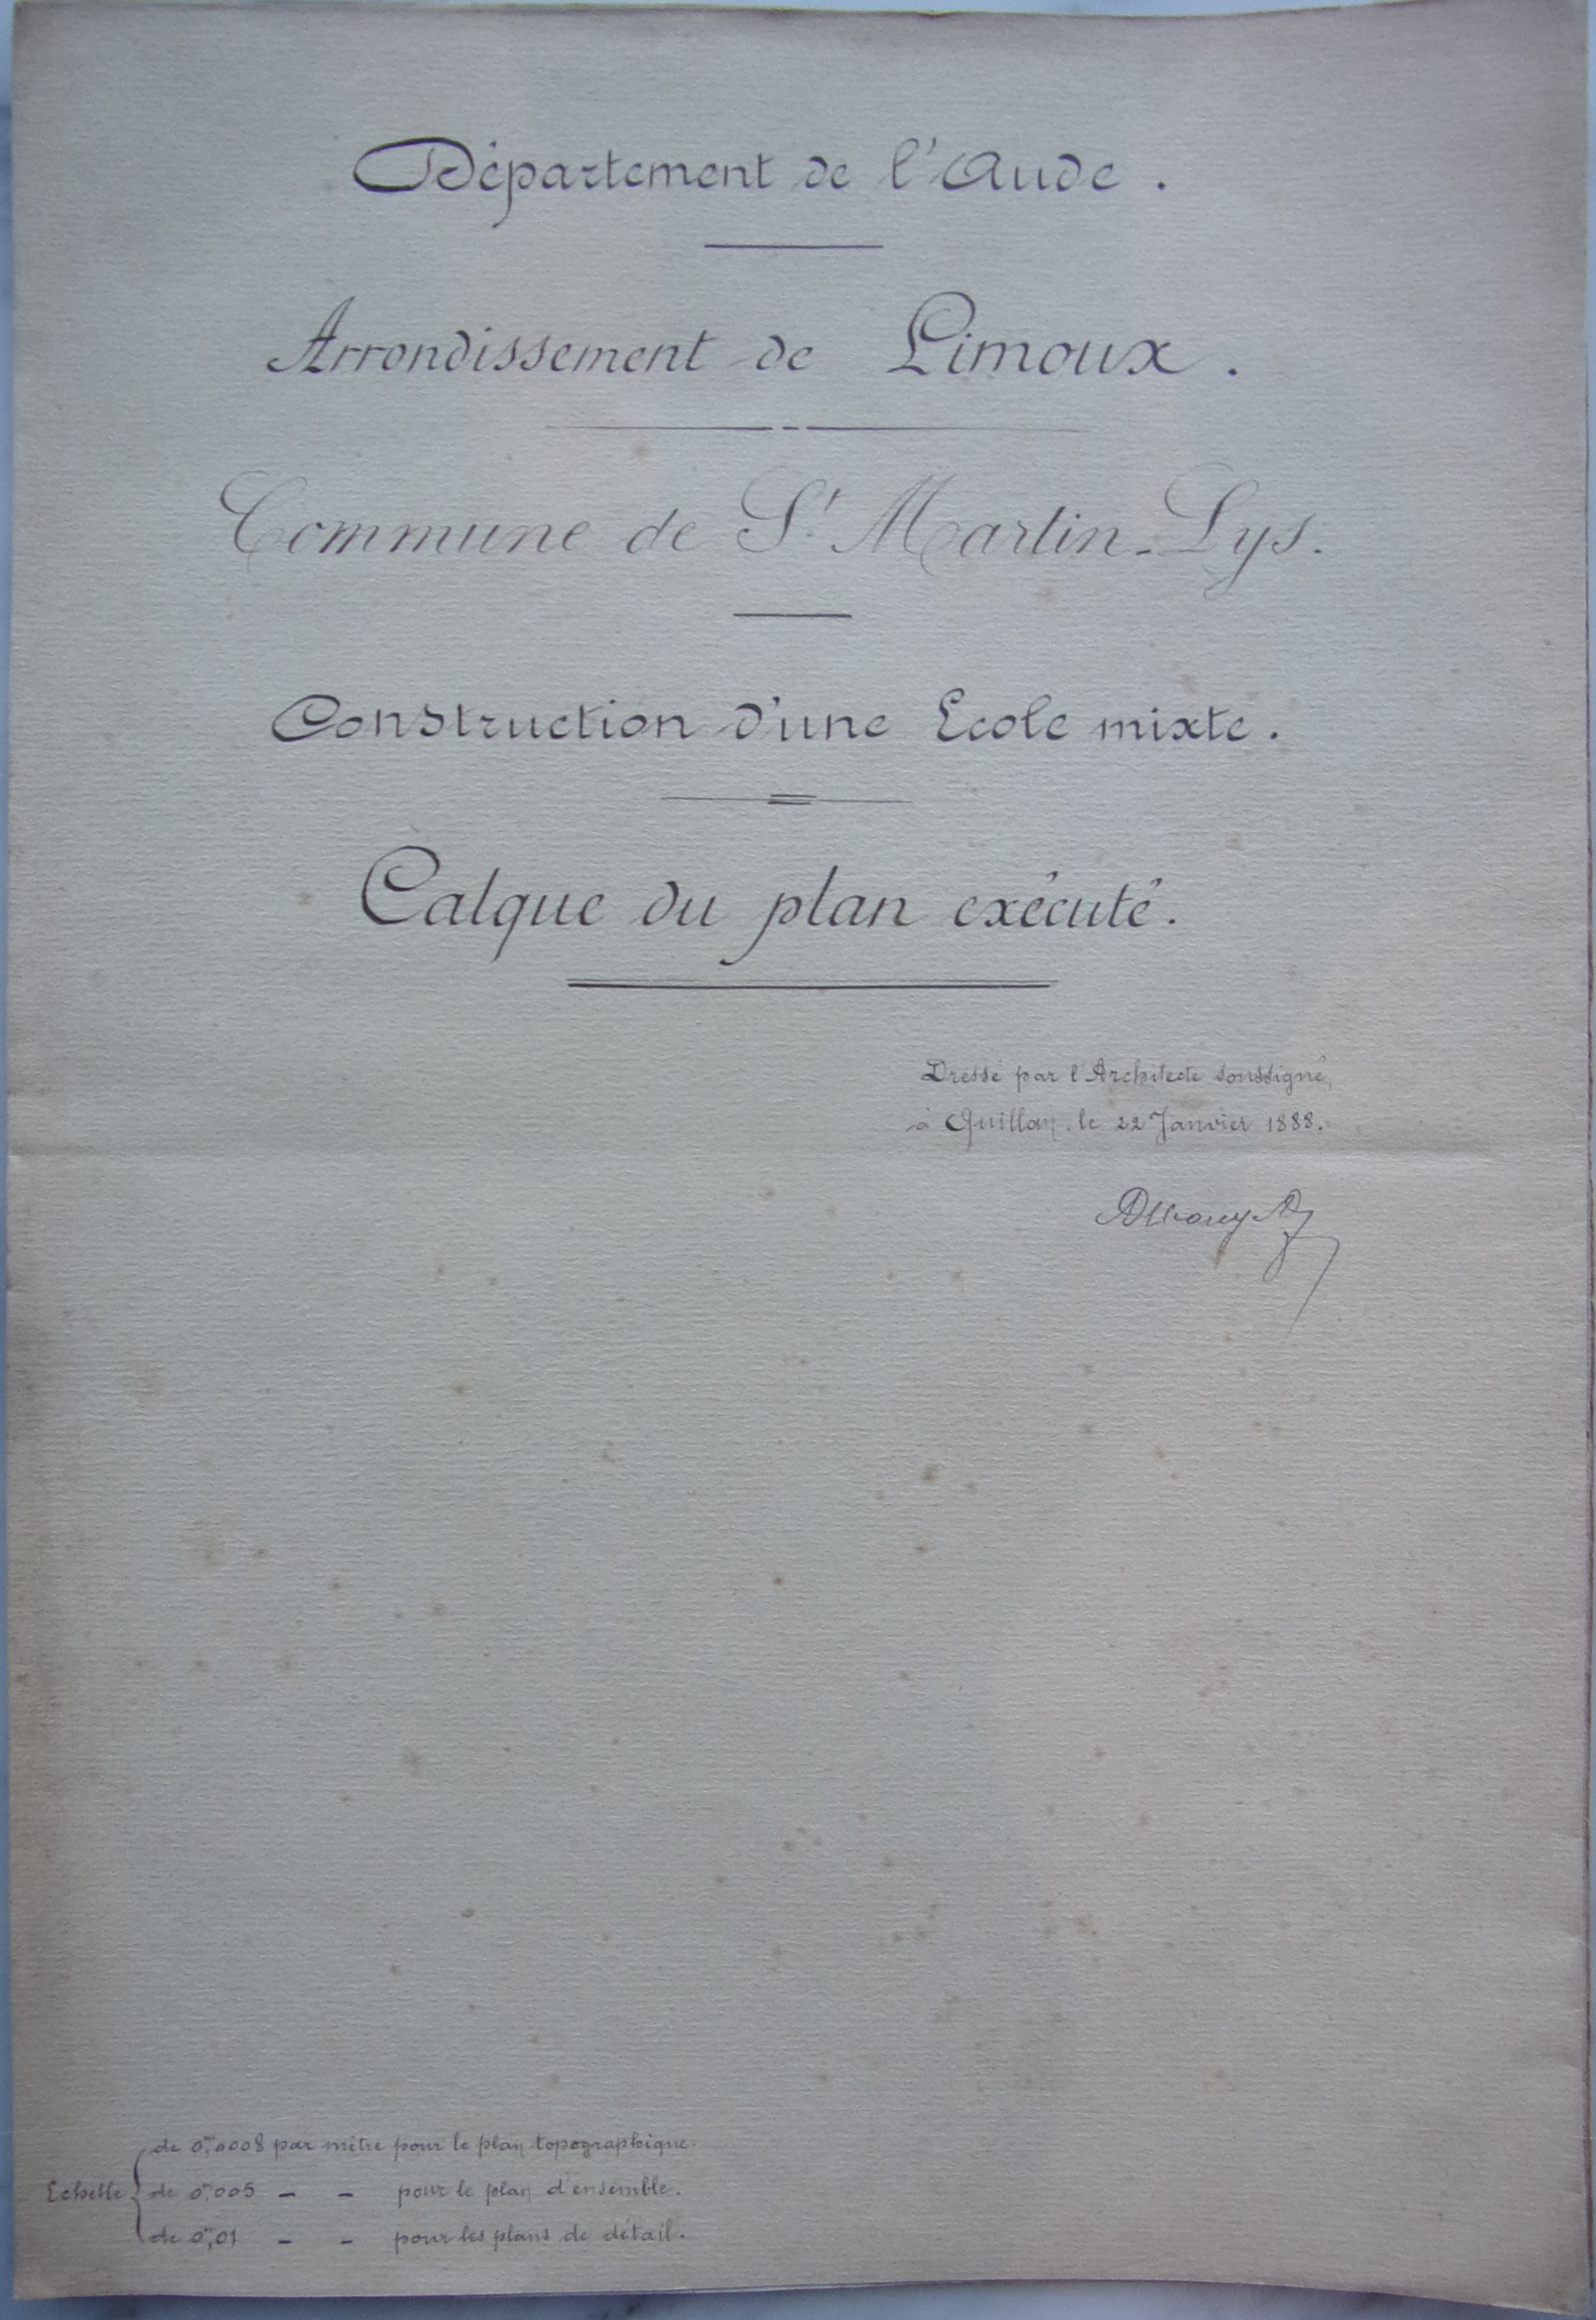 Département de l'Aude.
Arrondissement de Limoux.
Commune de St Martin-Lys.
Construction d'une Ecole mixte.
Calque du plan exécuté.
Dressé par l'Architecte soussigné,
à Quillan, le 22 Janvier 1888.
Echelle
de 0m,0008 par mètre pour le plan topographique.
de 0m,005 - - pour le plan d'ensemble.
de 0m,01 - - pour les plans de détail.